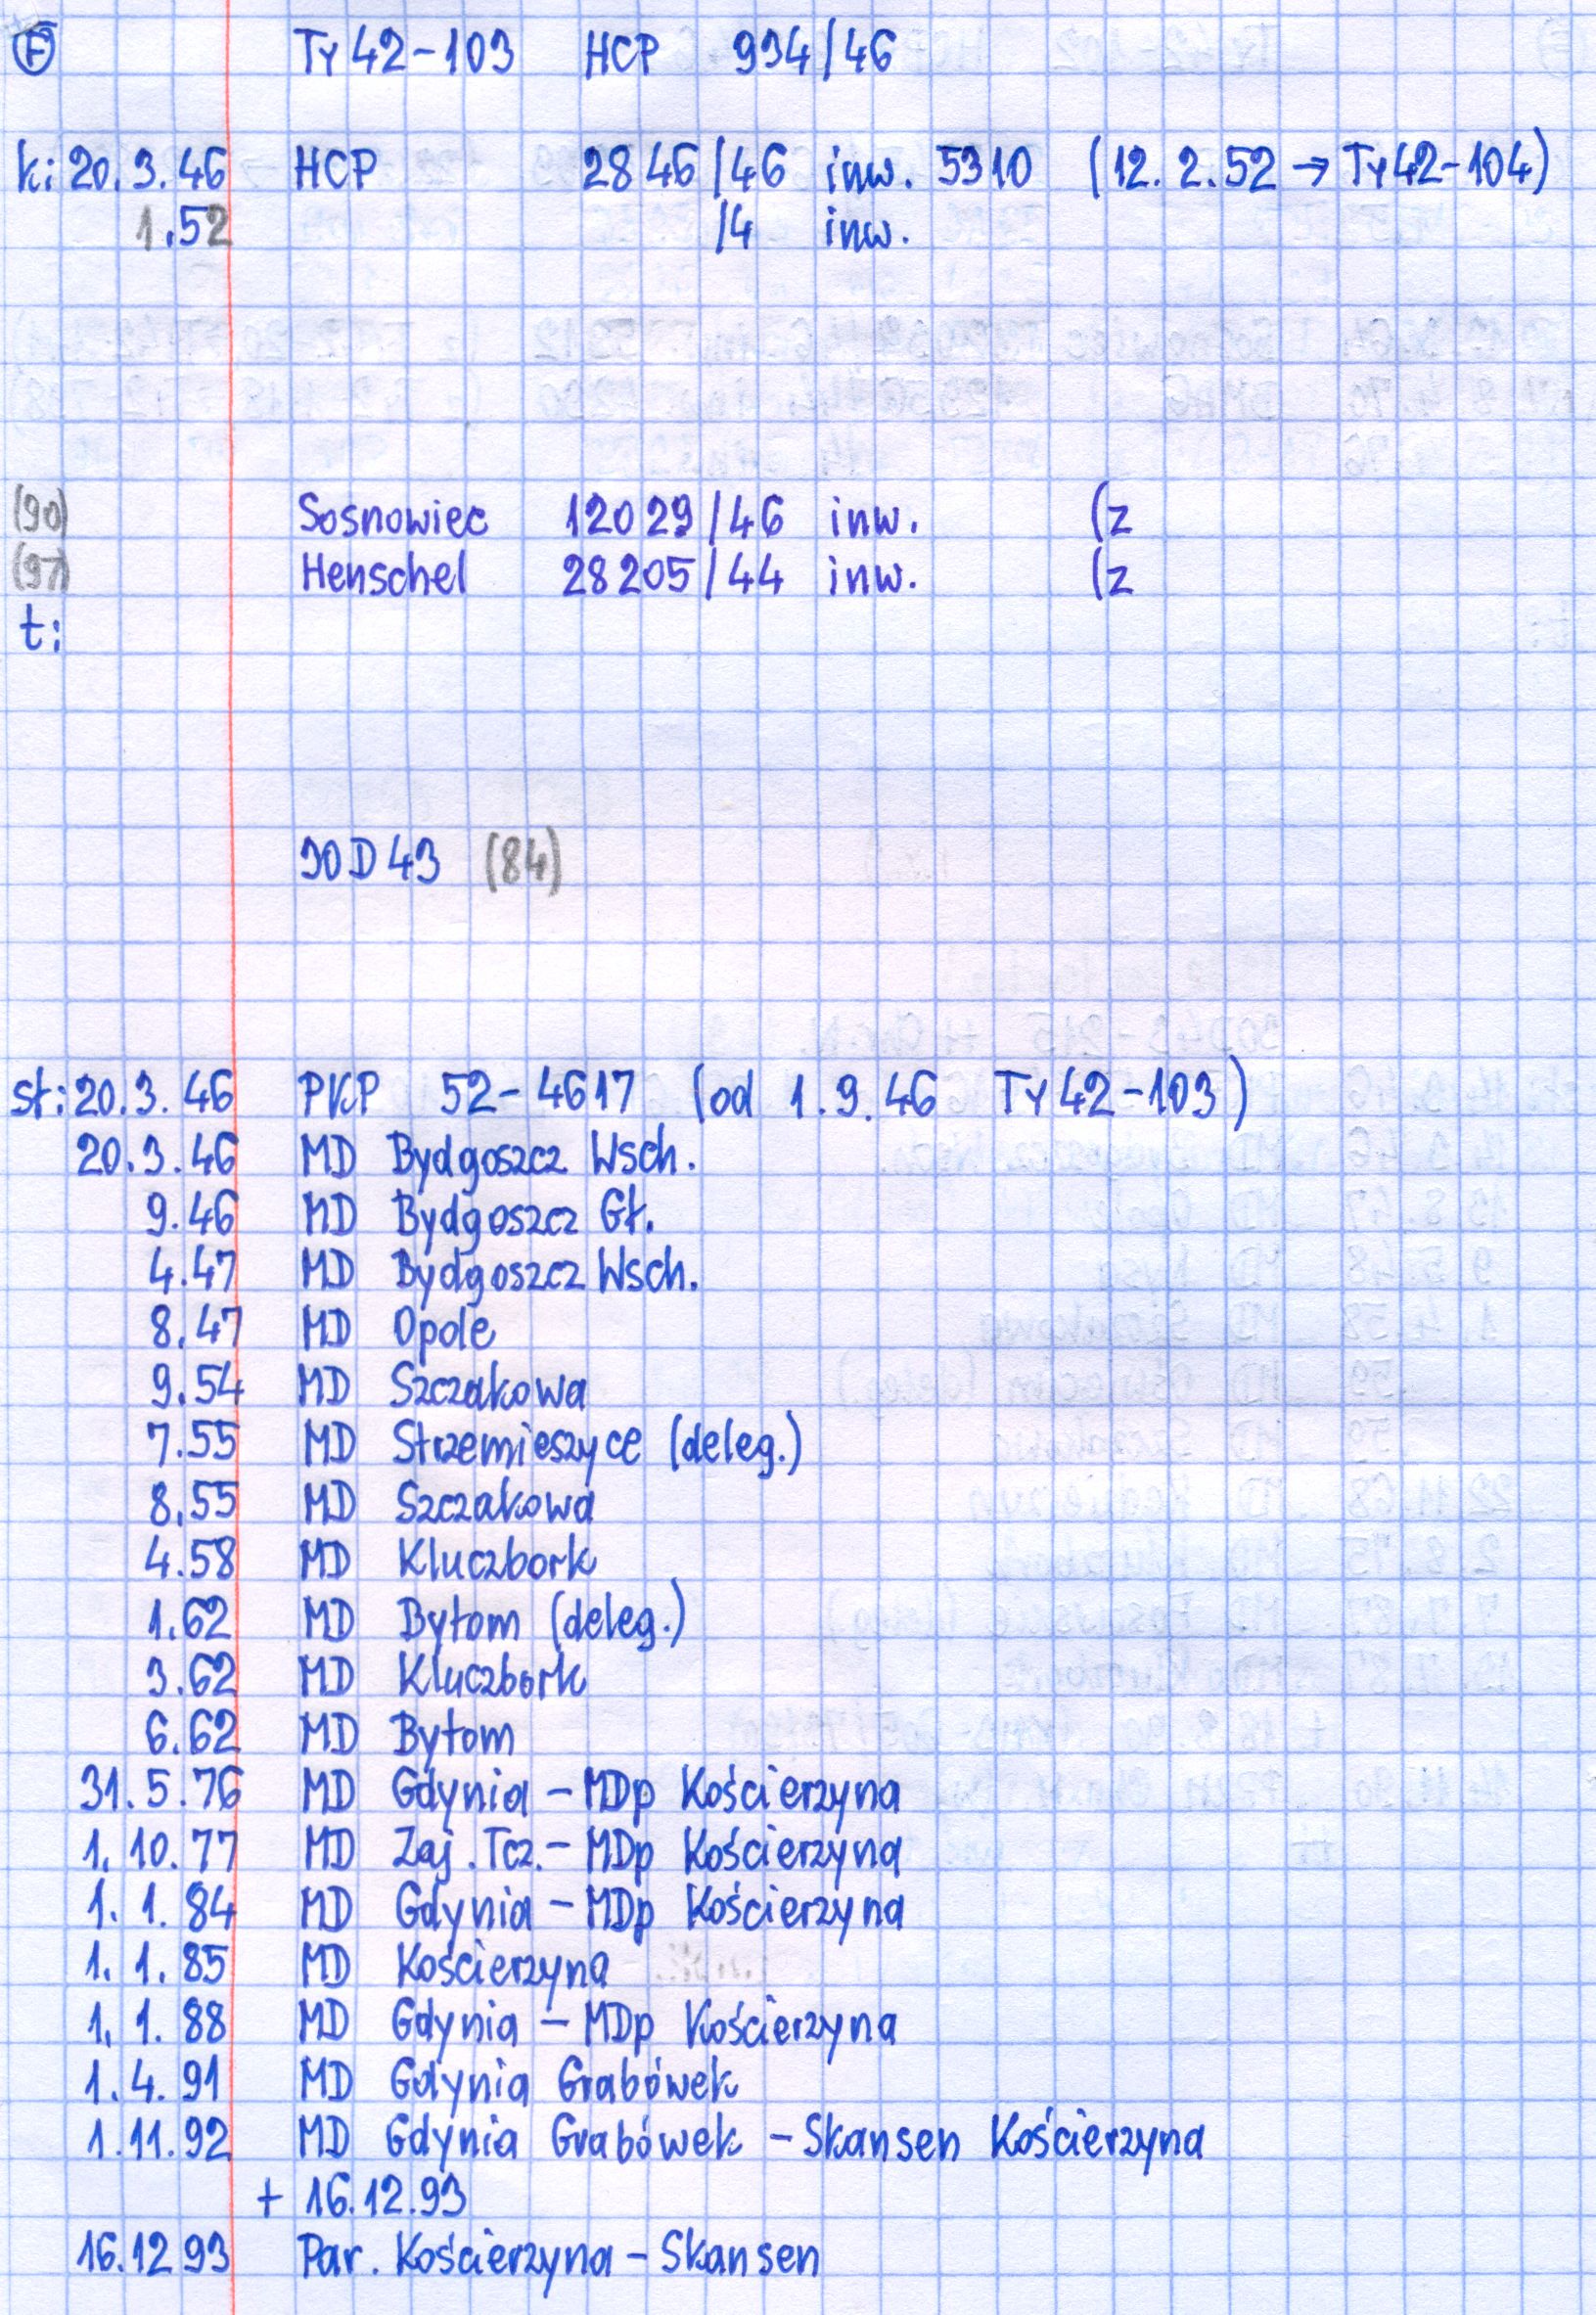 F Ty42-103 HCP 934/46
k: 20.3.46 HCP 2846/46 inw. 5310 (12.2.52 → Ty42-104)
1.52 /4 inw.
(90) Sosnowiec 12029/46 inw. (z
(97) Henschel 28205/44 inw. (z
t:
30D43 (84)
st: 20.3.46 PKP 52-4617 (od 1.9.46 Ty42-103)
20.3.46 MD Bydgoszcz Wsch.
9.46 MD Bydgoszcz Gł.
4.47 MD Bydgoszcz Wsch.
8.47 MD Opole
9.54 MD Szczakowa
7.55 MD Strzemieszyce (deleg.)
8.55 MD Szczakowa
4.58 MD Kluczbork
1.62 MD Bytom (deleg.)
3.62 MD Kluczbork
6.62 MD Bytom
31.5.76 MD Gdynia - MDp Kościerzyna
1.10.77 MD Zaj. Tcz. - MDp Kościerzyna
1.1.84 MD Gdynia - MDp Kościerzyna
1.1.85 MD Kościerzyna
1.1.88 MD Gdynia - MDp Kościerzyna
1.4.91 MD Gdynia Grabówek
1.11.92 MD Gdynia Grabówek - Skansen Kościerzyna
+ 16.12.93
16.12 93 Par. Kościerzyna - Skansen